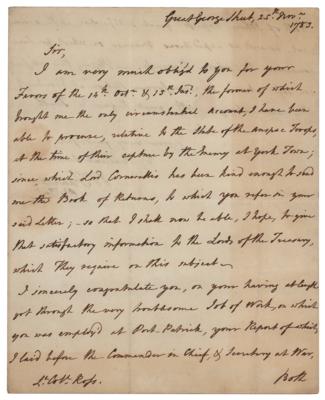 Great George Street, 25th Novr.
1783.
Sir,
I am very much oblig'd to you for your
Favors of the 14th. Octr. & 13th Inst. the former of which
brought me the only circumstantial account, I have been
able to procure, relative to the State of the Troops,
at the time of their capture by the Enemy at York Town;
since which Lord Cornwallis has been kind enough to send
me the Book of Returns, to which you refer in your
said Letter; – so that I shall now be able, I hope, to give
that satisfactory information to the Lords of the Treasury,
which They require on this subject –
I sincerely congratulate you, on your having at length
got through the very troublesome Job of Work, on which
you was employ'd at Port Patrick, your Report of which,
I laid before the Commander in Chief, & Secretary at War,
Lt. Colo. Ross.
Both